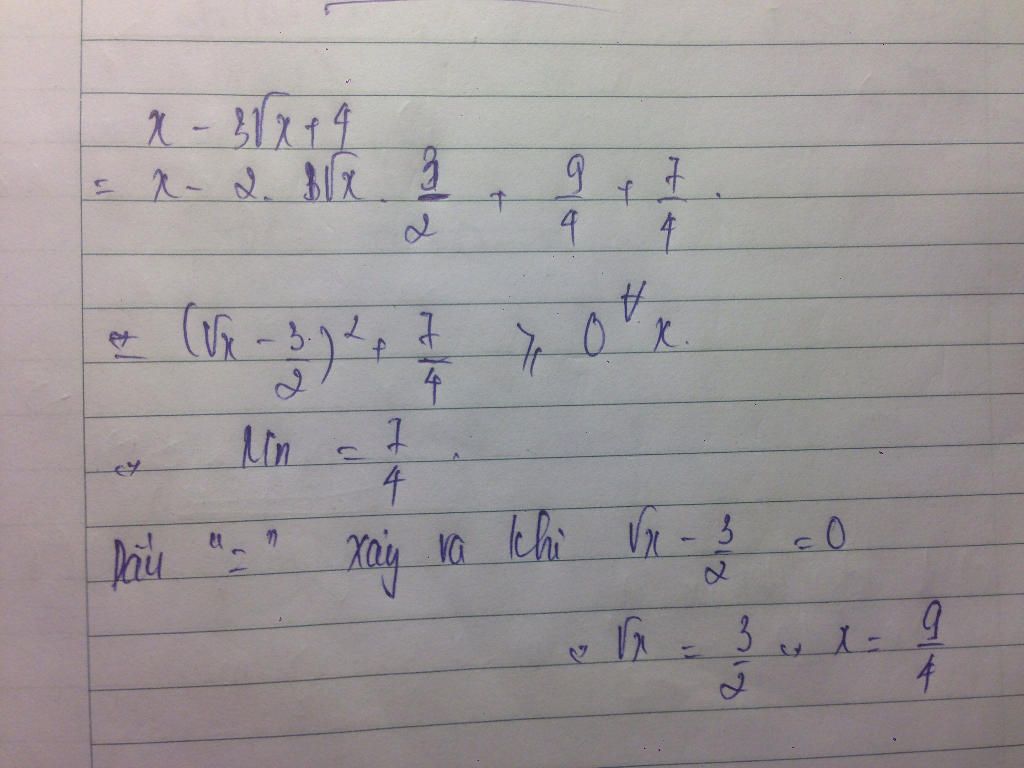 x - 3√x + 4
= x - 2. √x . 3/2 + 9/4 + 7/4 .
= (√x - 3/2)² + 7/4 ⩾ 0 ∀ x.
⇔ Min = 7/4 .
Dấu "=" xảy ra khi √x - 3/2 = 0
⇔ √x = 3/2 ⇔ x = 9/4